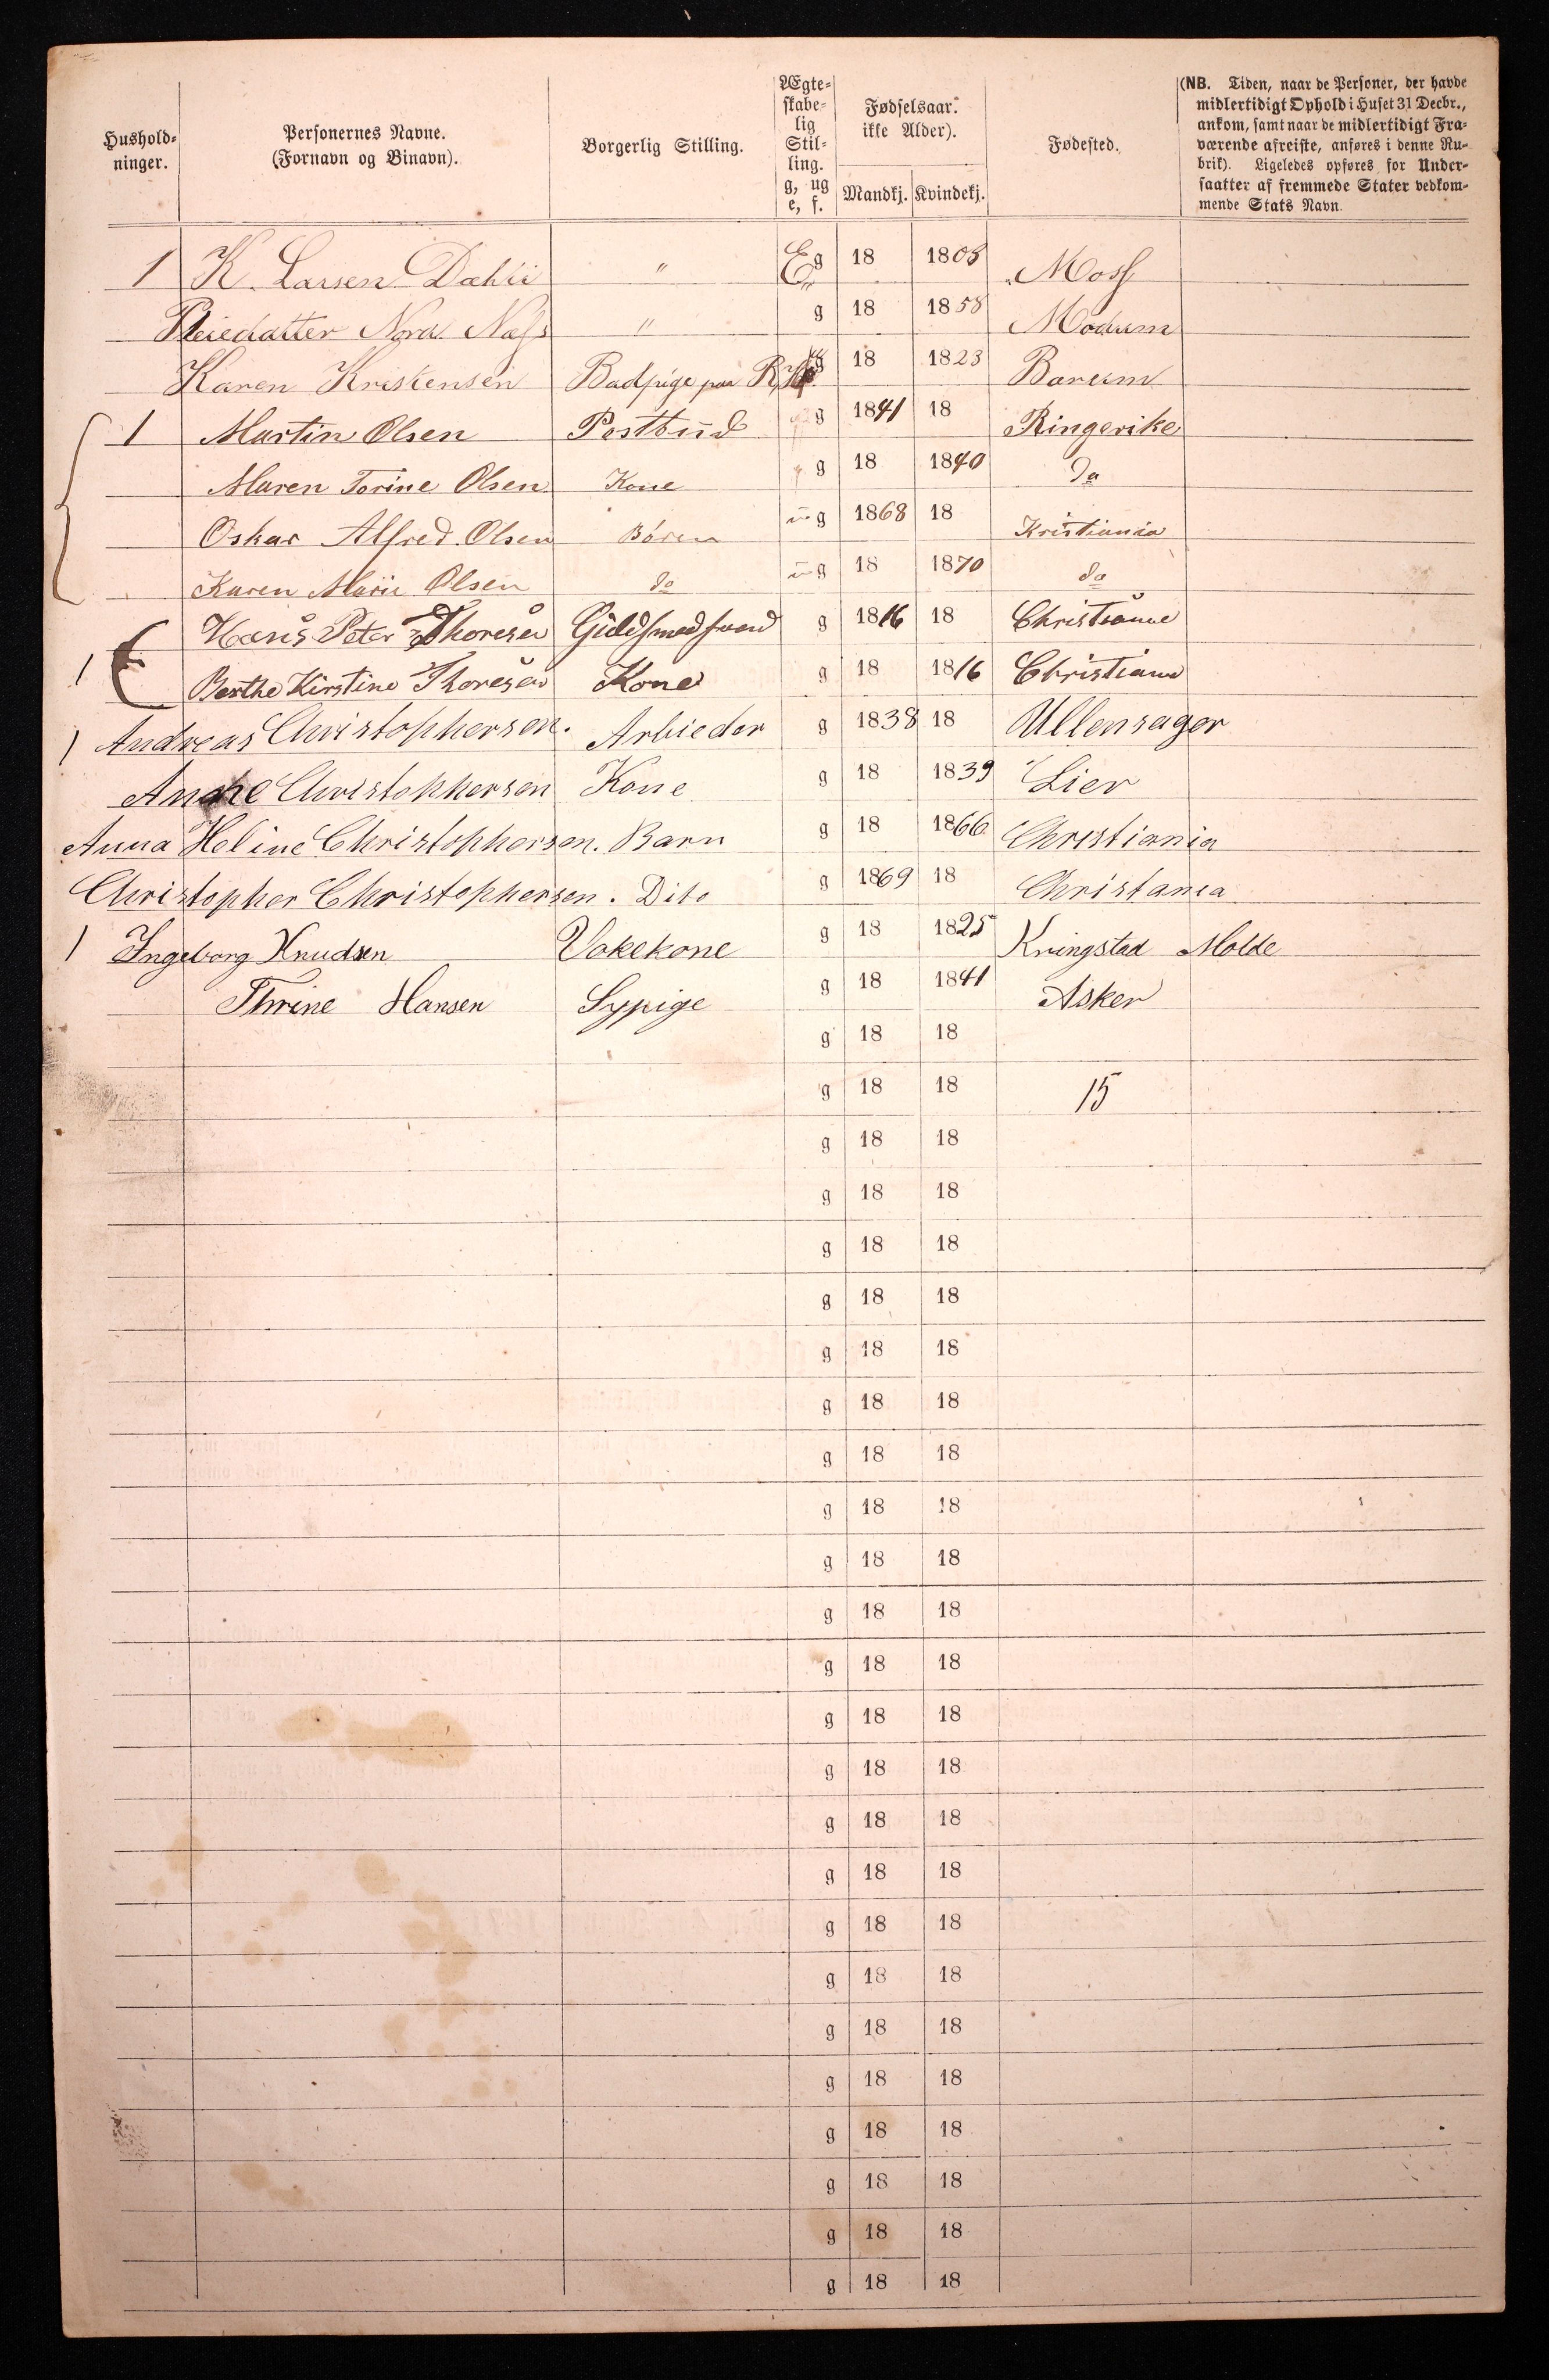 Hushold-
ninger.
Personernes Navne.
(Fornavn og Binavn).
Borgerlig Stilling.
Ægte-
skabe-
lig
Stil-
ling.
g, ug
e, f.
Fødselsaar.
ikke Alder).
Mandkj. Kvindekj.
Fødested.
(NB. Tiden, naar de Personer, der havde
midlertidigt Ophold i Huset 31 Decbr.,
ankom, samt naar de midlertidigt Fra-
værende afreiste, anføres i denne Ru-
brik). Ligeledes opføres for Under-
saatter af fremmede Stater vedkom-
mende Stats Navn.
1 K. Larsen Dæhlii " E g 18 1808 Moss
Pleiedatter Nora Næss " g 18 1858 Modum
Karen Kristensen Badpige paa g 18 1823 Barum
1 Martin Olsen Postbud g 1841 18 Ringerike
Maren Torine Olsen Kone g 18 1840 Do
Oskar Alfred Olsen Børen ug 1868 18 Kristiania
Karen Marie Olsen do ug 18 1870 do
Hans Peter Thoresen Guldsmedsvend g 1816 18 Christiania
1 Berthe Kirstine Thoresen Kone g 18 1816 Christiania
1 Andreas Christophersen. Arbieder g 1838 18 Ullensager
Anne Christophersen Kone g 18 1839 Lier
Anna Heline Christophersen. Barn g 18 1866 Christiania
Christopher Christophersen. Dito g 1869 18 Christania
1 Ingeborg Knudsen Vakekone g 18 1825 Kringstad Molde
Thrine Hansen Sypige g 18 1841 Asker
g 18 18
g 18 18 15
g 18 18
g 18 18
g 18 18
g 18 18
g 18 18
g 18 18
g 18 18
g 18 18
g 18 18
g 18 18
g 18 18
g 18 18
g 18 18
g 18 18
g 18 18
g 18 18
g 18 18
g 18 18
g 18 18
g 18 18
g 18 18
g 18 18
g 18 18